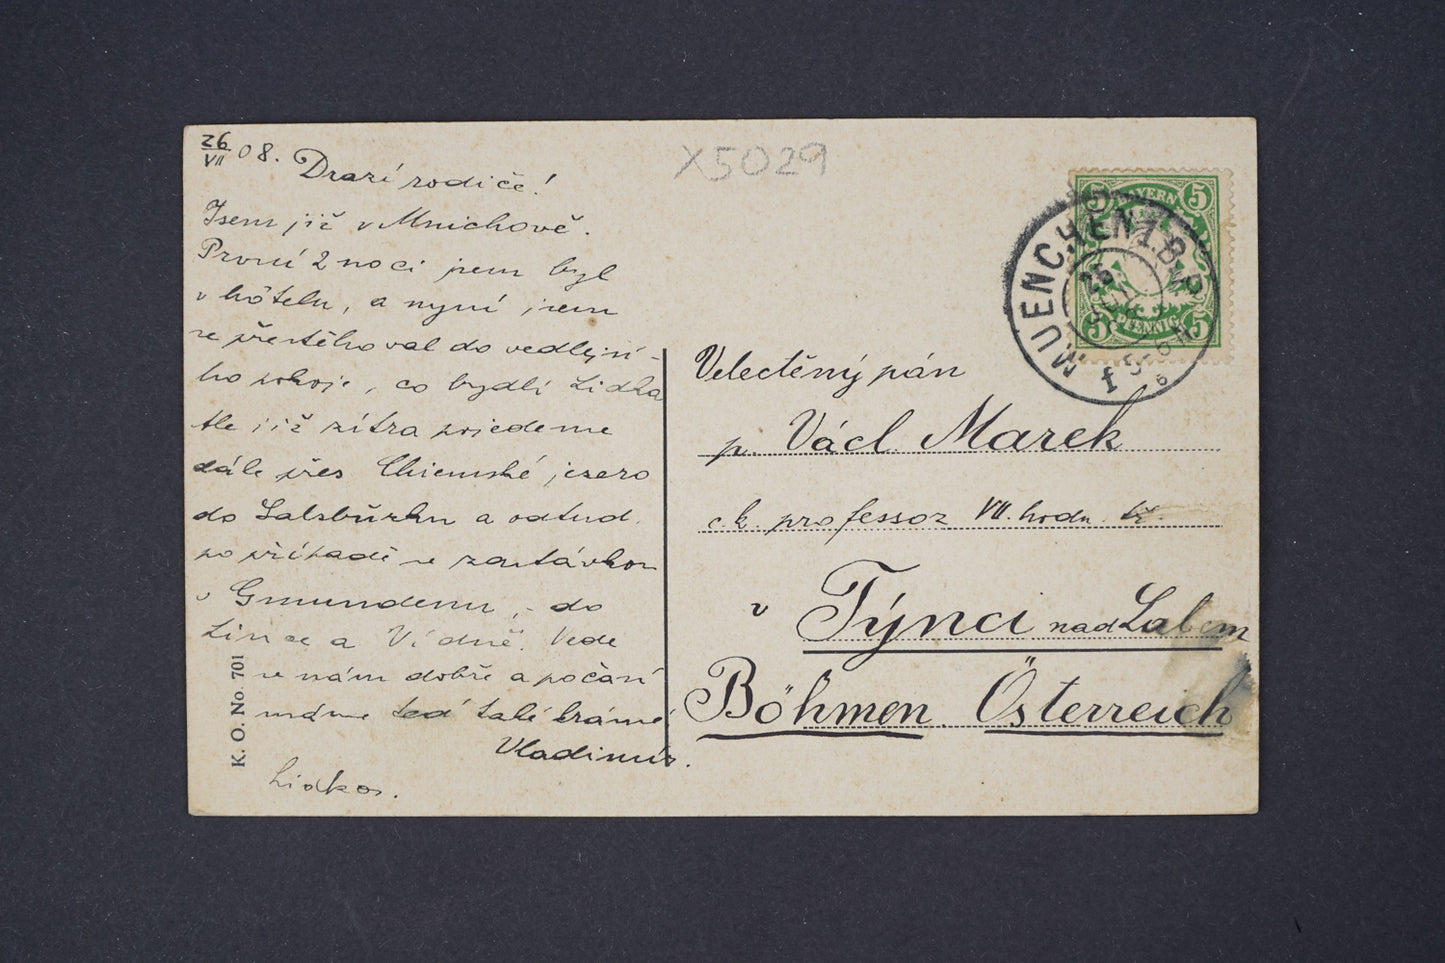 26/VII 08.
Drazí rodiče!
Jsem již v Mnichově.
První 2 noci jsem byl
v hôtelu, a nyní jsem
se přestěhoval do vedlejší-
ho pokoje, co bydlí Lidka
tle již zítra pojedeme
dále přes Chiemské jezero
do Salzbürku a odtud
po případě se zastávkou
v Gmundenu, do
Lince a Vídně. Vede
se nám dobře a počasí
máme teď také krásné.
Vladimír.
K. O. No. 701
X5029
BAYERN
5 5
5 5
PFENNIG
MUENCHEN 1. B.P.
Velectěný pán
p. Václ. Marek
c. k. professor VII. hodn. tř.
v Týnci nad Labem
Böhmen. Österreich